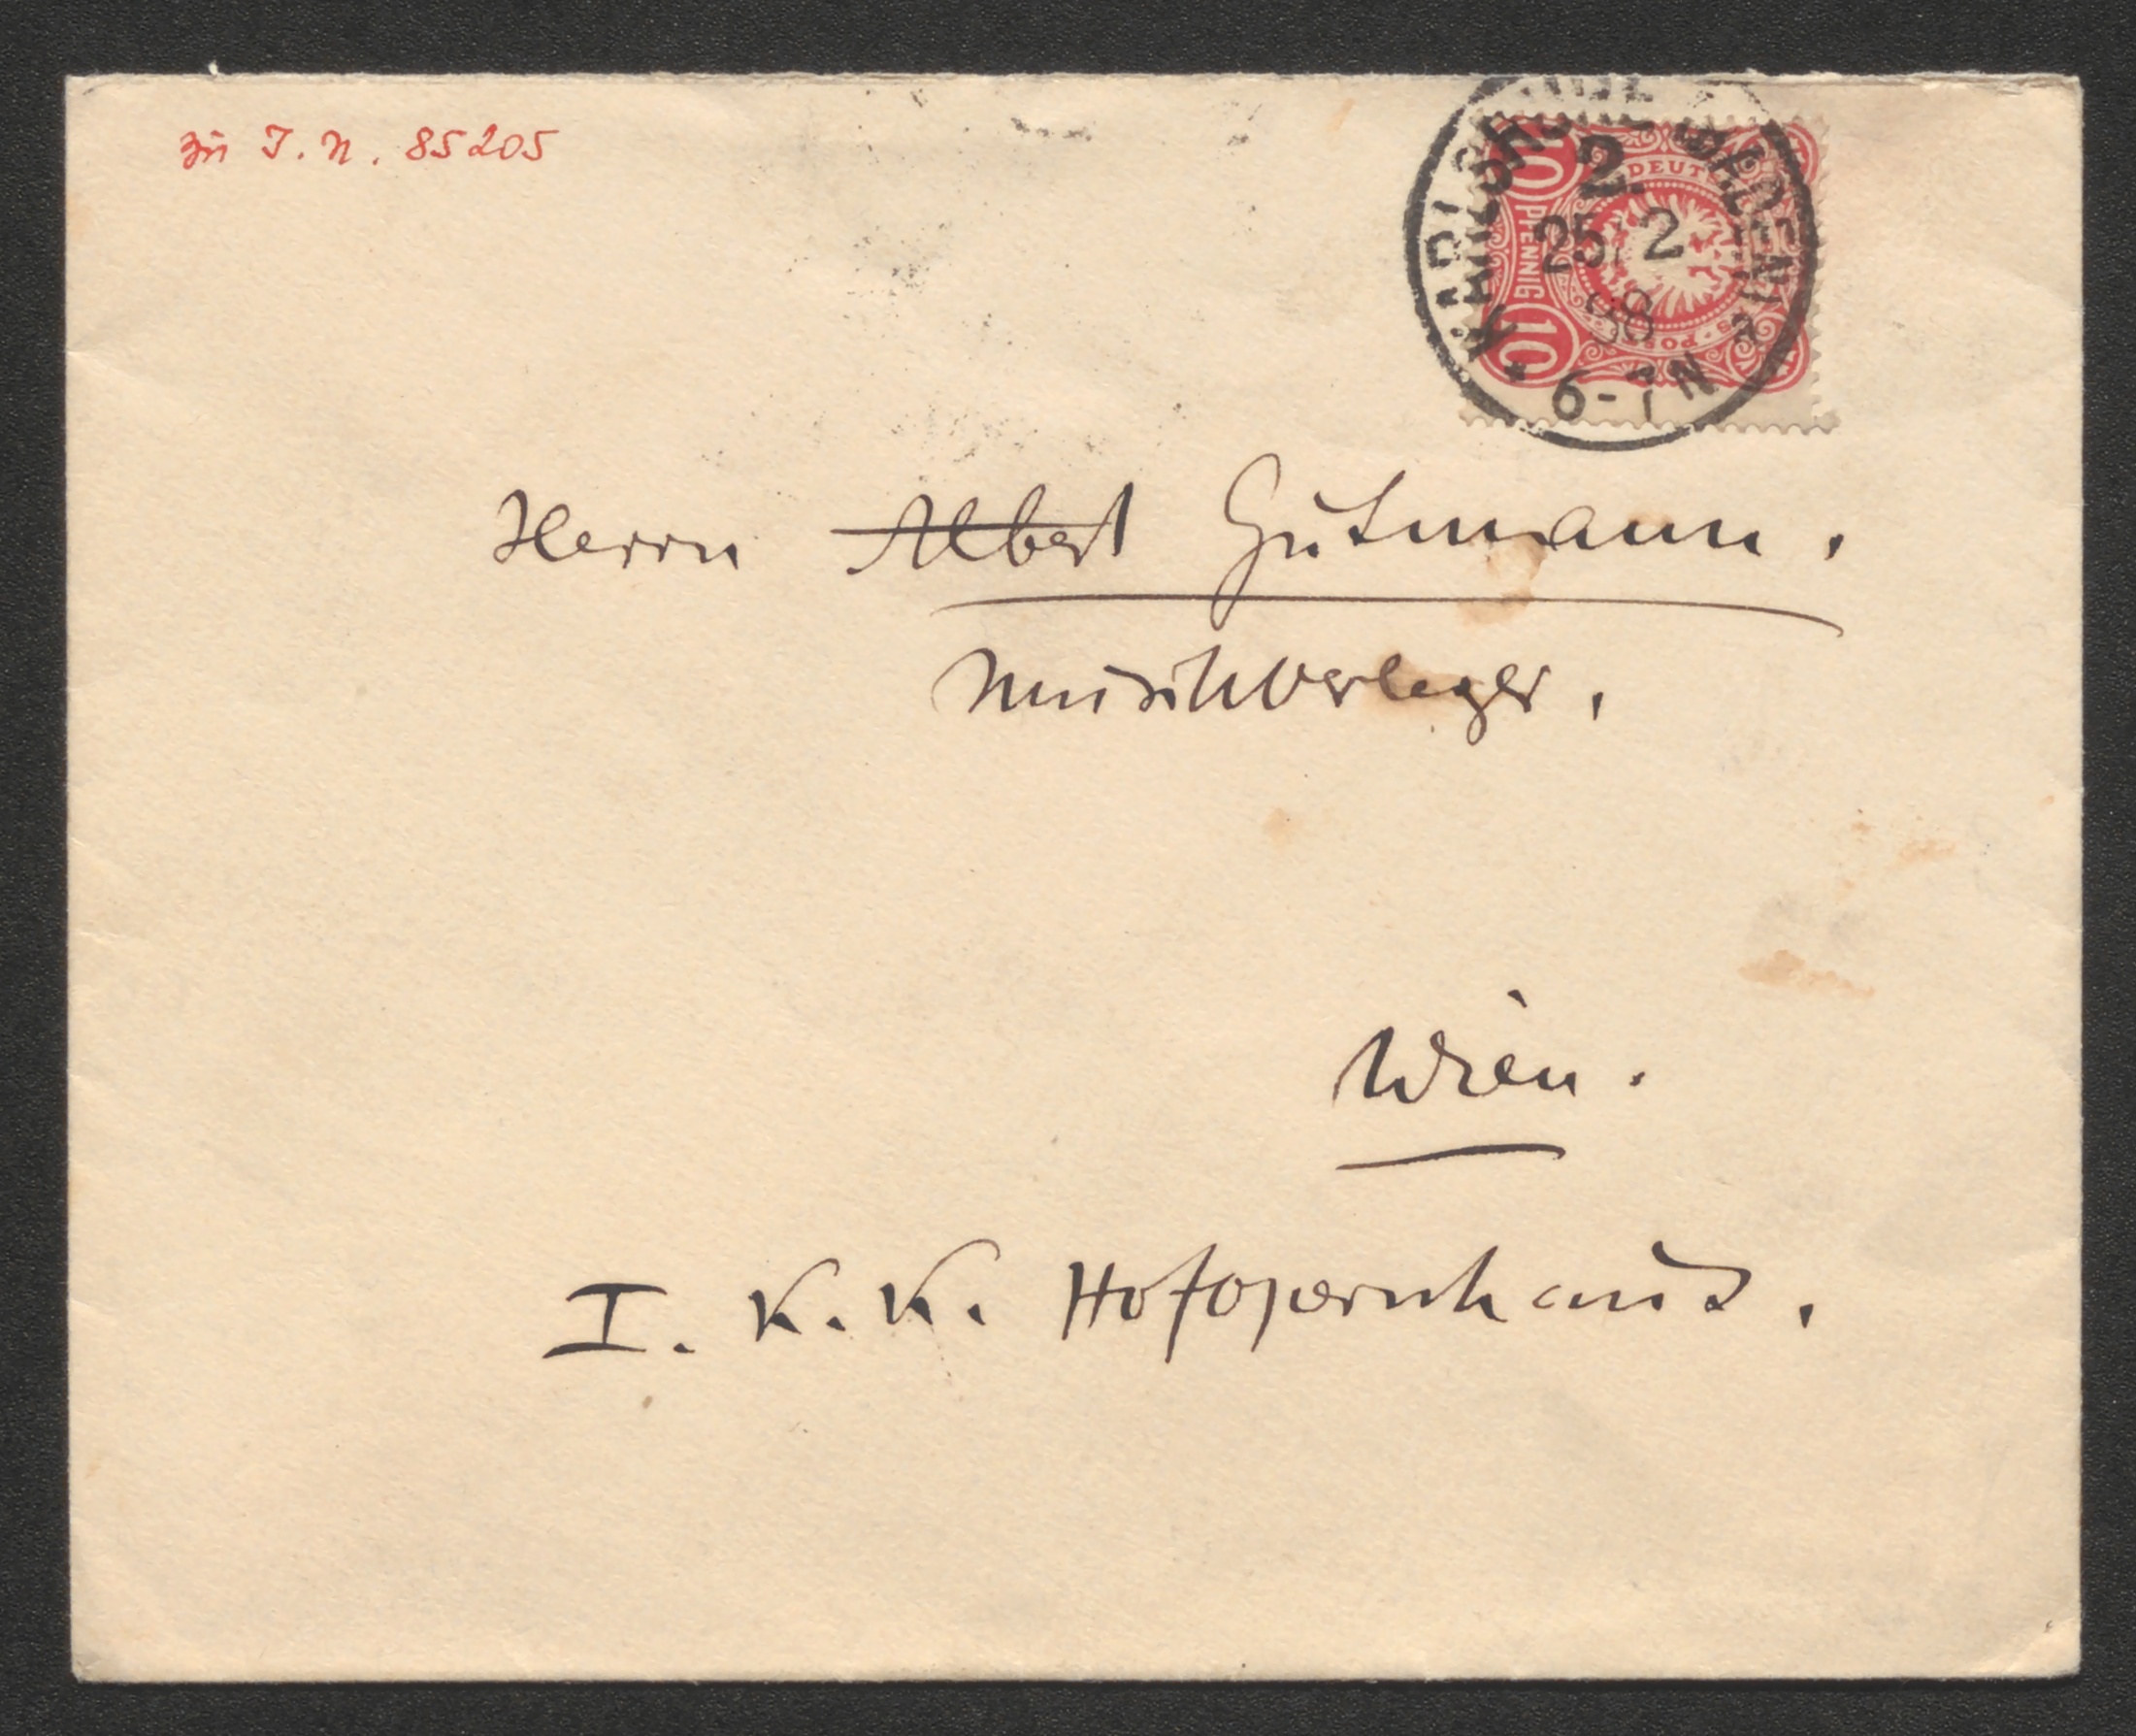 zu I.N. 85205
KARLSRUHE (BADEN)
2
25 2
88
6-7N
DEUT
10 PFENNIG 10
Herrn Albert Gutmann.
Musikverleger.
Wien.
I. K. K. Hofopernhaus.